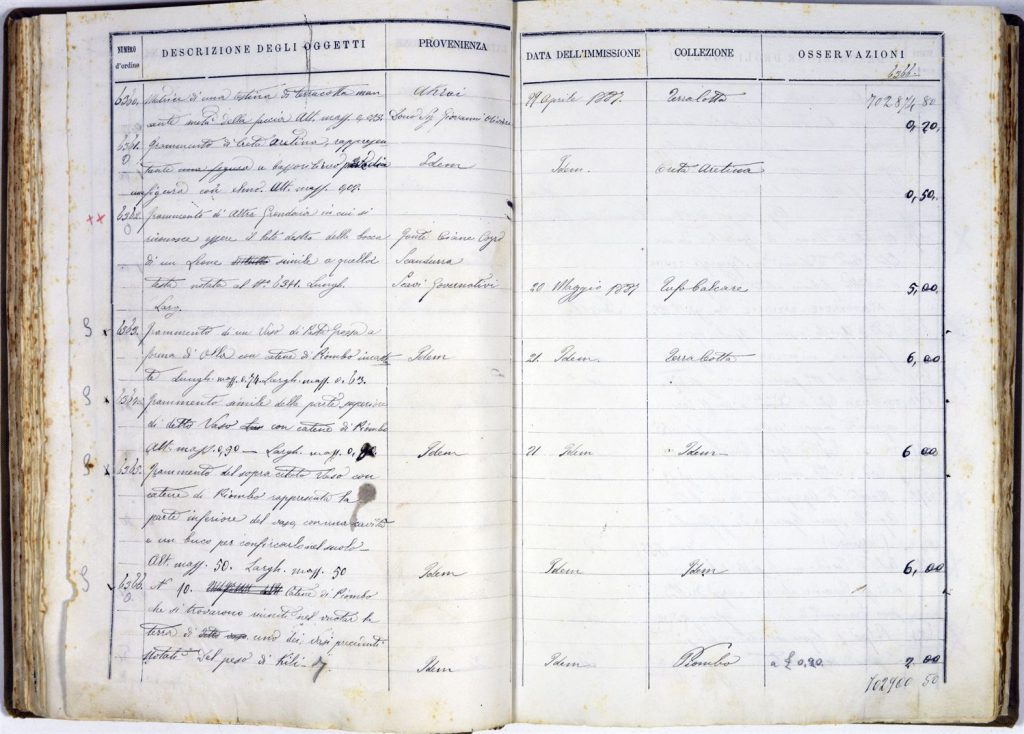 NUMERO d'ordine
DESCRIZIONE DEGLI OGGETTI
PROVENIENZA
DATA DELL'IMMISSIONE
COLLEZIONE
OSSERVAZIONI
6366.
6360. Matrice di una testina di terracotta man
cante metà della faccia Alt. mass.
29 Aprile 1887. Terracotta 702874 80
0,20,
6361. frammento di Creta Aretina, rappresen
0
tante una figura a bassorilievo Idem Idem. Creta Aretina
figura con Alt. mass. 0,50,
xx 6362. frammento di Altra Grondaia in cui si
0
riconosce essere il lato destro della bocca Fonte Ciane
di un Leone simile a quella Scandurra
testa notata al No. 6341. Lungh. Scavi Governativi 20 Maggio 1887 Tufo Calcare 5,00,
Larg.
S 6363. frammento di un Vaso di Pasta Grezza a
forma di Olla con catene di Piombo Idem 21 Idem. Terra Cotta 6,00
Lungh. mass. 0,74. Largh. mass. 0,63.
S 6364. frammento simile della parte superiore
di detto Vaso con catene di Piombo
Alt. mass. 0,90 — Largh. mass. Idem 21 Idem Idem 6 00
S 6365. frammento del sopra citato Vaso con
catene di Piombo rappresenta la
parte inferiore del vaso, con una cavità
e un buco per conficcarlo nel suolo —
Alt. mass. 50. Largh. mass. 50 Idem Idem Idem 6,00
S 6366. No 10. Catene di Piombo
0
che si trovarono riuniti nel vuotar la
terra di detto vaso uno dei vasi
notati Del peso di Kili — 7 Idem Idem Piombo a £ 0.20 2 00
702900 50